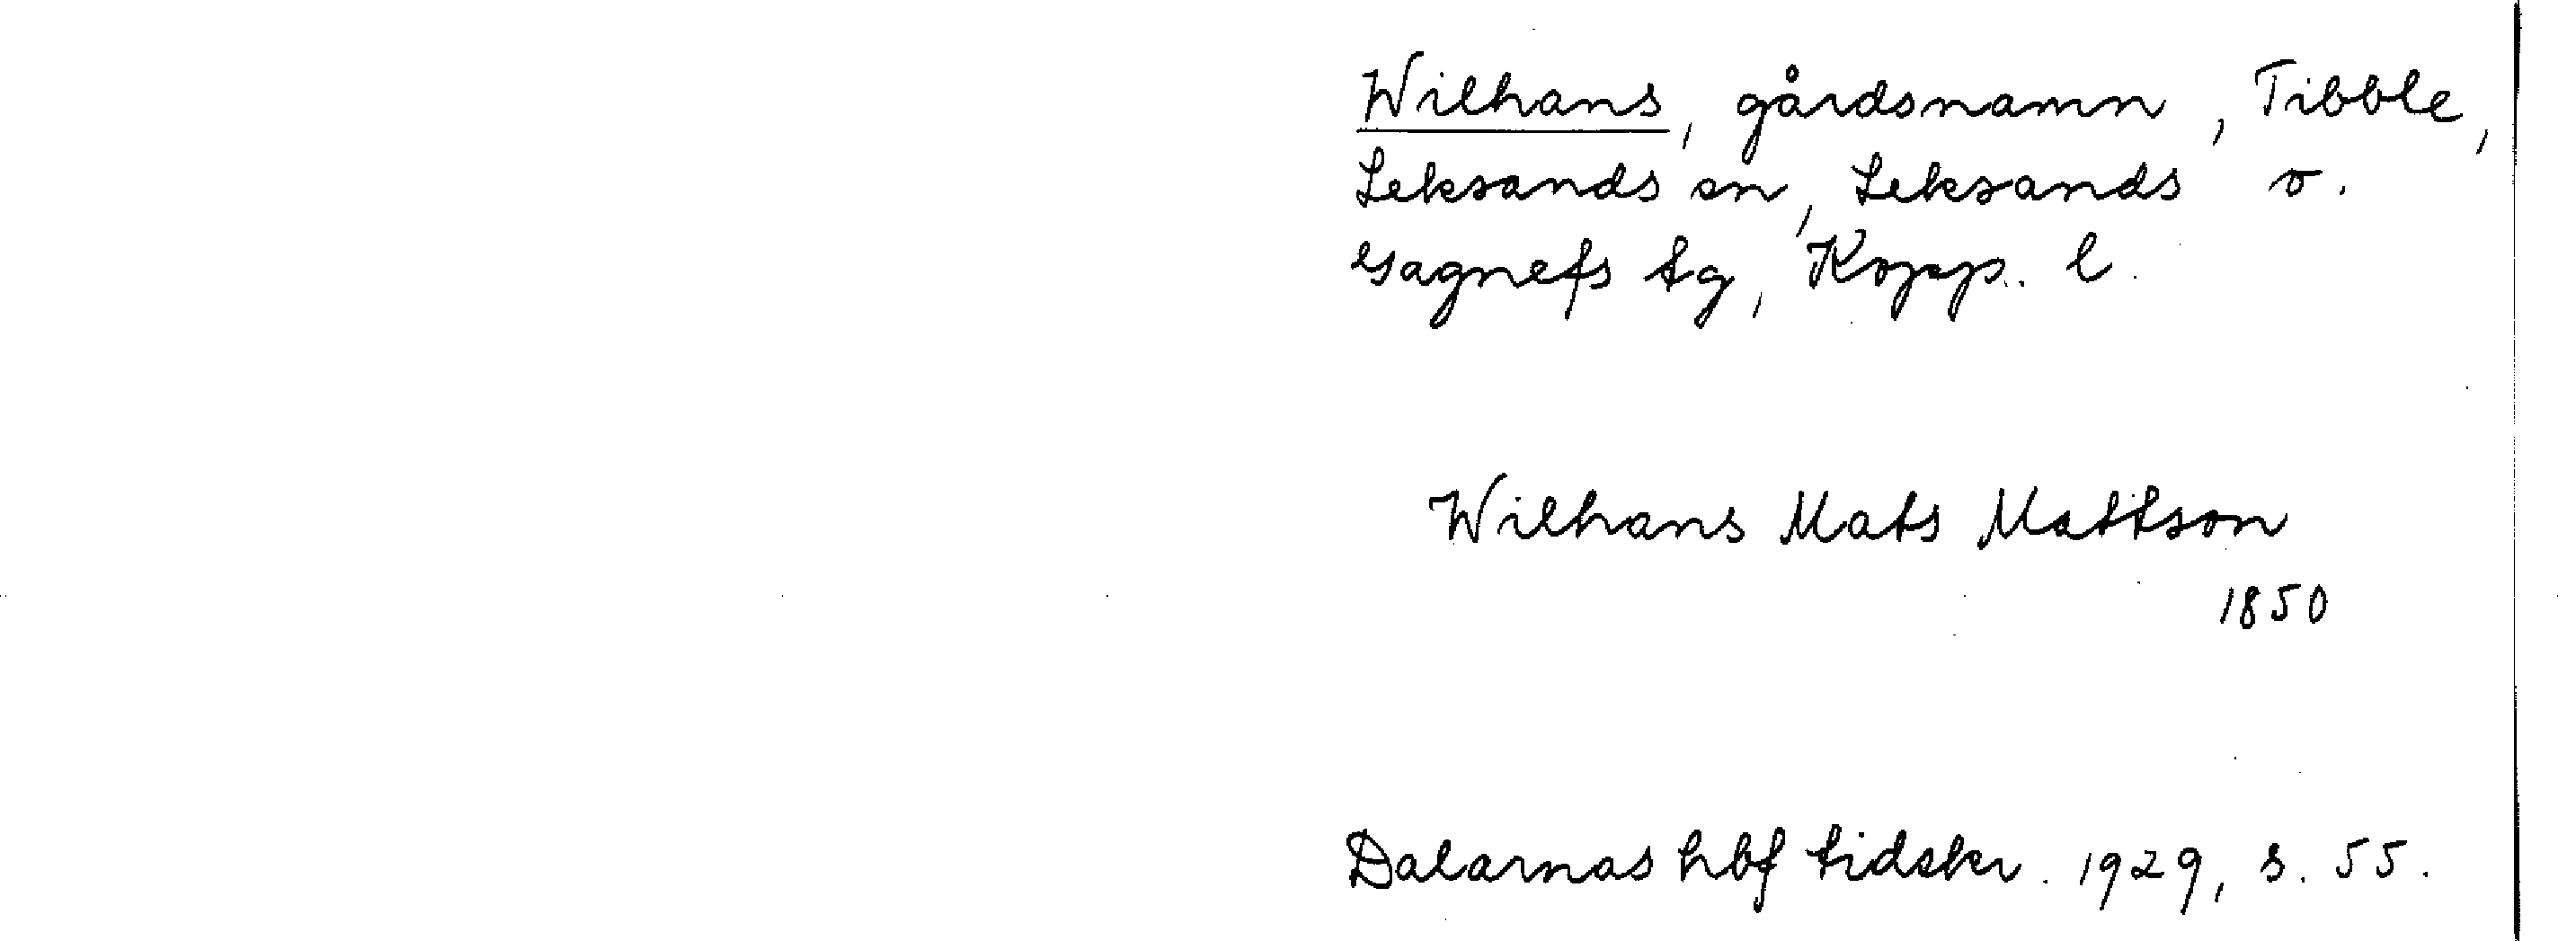 Wilhans, gårdsnamn, Tibble,
Leksands sn, Leksands o.
Gagnefs tg, Kopp. l.
Wilhans Mats Mattson
1850
Dalarnas hbf tidskr. 1929, s. 55.